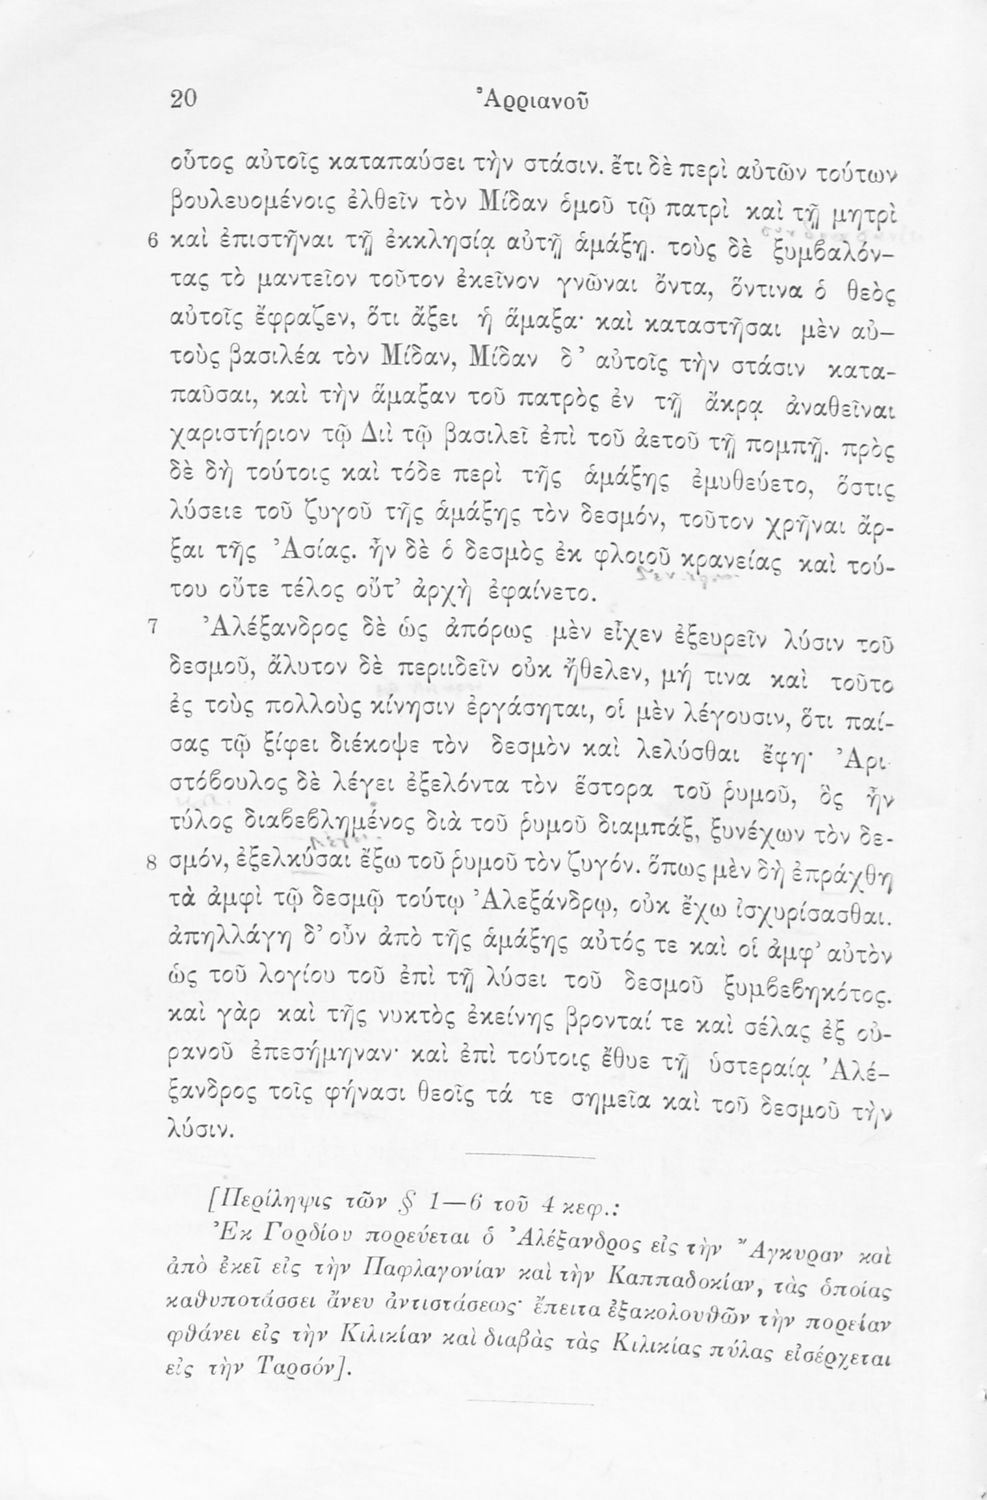 20 Ἀρριανοῦ
οὗτος αὐτοῖς καταπαύσει τὴν στάσιν. ἔτι δὲ περὶ αὐτῶν τούτων
βουλευομένοις ἐλθεῖν τὸν Μίδαν ὁμοῦ τῷ πατρὶ καὶ τῇ μητρὶ
6 καὶ ἐπιστῆναι τῇ ἐκκλησίᾳ αὐτῇ ἁμάξῃ. τοὺς δὲ ξυμβαλόν-
τας τὸ μαντεῖον τοῦτον ἐκεῖνον γνῶναι ὄντα, ὅντινα ὁ θεὸς
αὐτοῖς ἔφραζεν, ὅτι ἄξει ἡ ἅμαξα· καὶ καταστῆσαι μὲν αὐ-
τοὺς βασιλέα τὸν Μίδαν, Μίδαν δ' αὐτοῖς τὴν στάσιν κατα-
παῦσαι, καὶ τὴν ἅμαξαν τοῦ πατρὸς ἐν τῇ ἄκρᾳ ἀναθεῖναι
χαριστήριον τῷ Διὶ τῷ βασιλεῖ ἐπὶ τοῦ ἀετοῦ τῇ πομπῇ. πρὸς
δὲ δὴ τούτοις καὶ τόδε περὶ τῆς ἁμάξης ἐμυθεύετο, ὅστις
λύσειε τοῦ ζυγοῦ τῆς ἁμάξης τὸν δεσμόν, τοῦτον χρῆναι ἄρ-
ξαι τῆς Ἀσίας. ἦν δὲ ὁ δεσμὸς ἐκ φλοιοῦ κρανείας καὶ τού-
του οὔτε τέλος οὔτ' ἀρχὴ ἐφαίνετο.
7 Ἀλέξανδρος δὲ ὡς ἀπόρως μὲν εἶχεν ἐξευρεῖν λύσιν τοῦ
δεσμοῦ, ἄλυτον δὲ περιιδεῖν οὐκ ἤθελεν, μή τινα καὶ τοῦτο
ἐς τοὺς πολλοὺς κίνησιν ἐργάσηται, οἱ μὲν λέγουσιν, ὅτι παί-
σας τῷ ξίφει διέκοψε τὸν δεσμὸν καὶ λελύσθαι ἔφη· Ἀρι
στόβουλος δὲ λέγει ἐξελόντα τὸν ἕστορα τοῦ ῥυμοῦ, ὃς ἦν
τύλος διαβεβλημένος διὰ τοῦ ῥυμοῦ διαμπάξ, ξυνέχων τὸν δε-
8 σμόν, ἐξελκύσαι ἔξω τοῦ ῥυμοῦ τὸν ζυγόν. ὅπως μὲν δὴ ἐπράχθη
τὰ ἀμφὶ τῷ δεσμῷ τούτῳ Ἀλεξάνδρῳ, οὐκ ἔχω ἰσχυρίσασθαι.
ἀπηλλάγη δ' οὖν ἀπὸ τῆς ἁμάξης αὐτός τε καὶ οἱ ἀμφ' αὐτὸν
ὡς τοῦ λογίου τοῦ ἐπὶ τῇ λύσει τοῦ δεσμοῦ ξυμβεβηκότος.
καὶ γὰρ καὶ τῆς νυκτὸς ἐκείνης βρονταί τε καὶ σέλας ἐξ οὐ-
ρανοῦ ἐπεσήμηναν· καὶ ἐπὶ τούτοις ἔθυε τῇ ὑστεραίᾳ Ἀλέ-
ξανδρος τοῖς φήνασι θεοῖς τά τε σημεῖα καὶ τοῦ δεσμοῦ τὴν
λύσιν.
[Περίληψις τῶν § 1—6 τοῦ 4 κεφ.:
Ἐκ Γορδίου πορεύεται ὁ Ἀλέξανδρος εἰς τὴν Ἄγκυραν καὶ
ἀπὸ ἐκεῖ εἰς τὴν Παφλαγονίαν καὶ τὴν Καππαδοκίαν, τὰς ὁποίας
καθυποτάσσει ἄνευ ἀντιστάσεως· ἔπειτα ἐξακολουθῶν τὴν πορείαν
φθάνει εἰς τὴν Κιλικίαν καὶ διαβὰς τὰς Κιλικίας πύλας εἰσέρχεται
εἰς τὴν Ταρσόν].